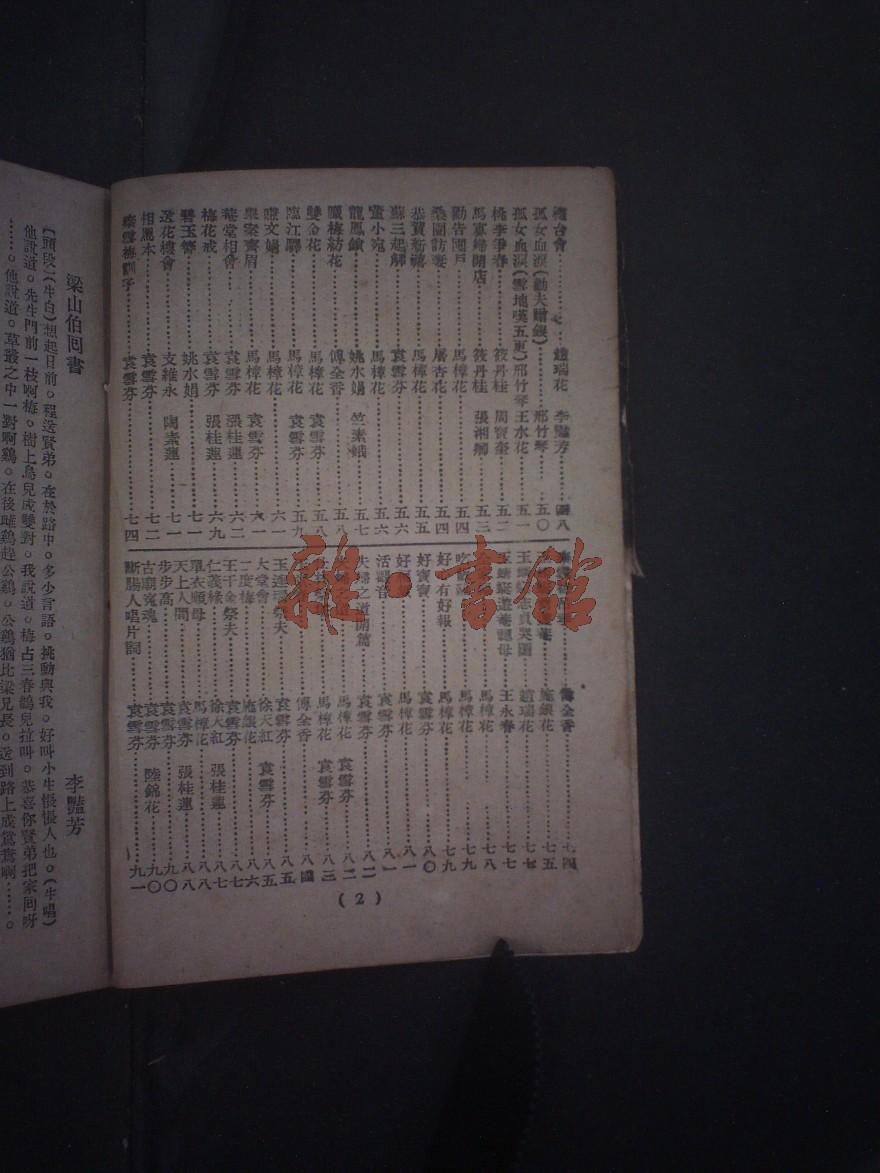 樓台會 趙瑞花 李豔芳 四八
孤女血淚(勸夫贈銀) 邢竹琴 五〇
孤女血淚(雪地嘆五更) 邢竹琴 王水花 五一
桃李爭春 筱丹桂 周寶奎 五二
馬寡婦開店 筱丹桂 張湘卿 五三
勸告閨戶 馬樟花 五四
桑園訪妻 屠杏花 五四
恭賀新禧 馬樟花 五五
蘇三起解 袁雪芬 五六
董小宛 馬樟花 五六
龍鳳鎖 姚水娟 竺素娥 五七
臘梅紡花 傅全香 五八
雙金花 馬樟花 袁雪芬 五八
臨江驛 馬樟花 袁雪芬 五九
馬樟花 六一
舉案齊眉 馬樟花 袁雪芬 六一
菴堂相會 袁雪芬 張桂蓮 六二
梅花戒 袁雪芬 張桂蓮 六九
碧玉簪 姚水娟 七一
送花樓會 支維永 陶素蓮 七一
相罵本 袁雪芬 七二
秦雪梅訓子 袁雪芬 七四
傅全香 七四
施銀花 七五
趙瑞花 七七
王永春 七七
馬樟花 七八
好 有好報 馬樟花 七九
好寶寶 袁雪芬 八〇
好 馬樟花 八一
活觀音 袁雪芬 八一
夫婦之道開篇 袁雪芬 八二
馬樟花 袁雪芬 八二
馬樟花 袁雪芬 八三
傅全香 八四
王 夫 袁雪芬 八五
大堂會 徐天紅 袁雪芬 八五
二度梅 施銀花 八六
王千金祭夫 袁雪芬 八七
仁義緣 徐天紅 張桂蓮 八七
單衣順母 馬樟花 八八
天上人間 袁雪芬 張桂蓮 八八
步步高 袁雪芬 九〇
古廟冤魂 袁雪芬 陸錦花 九〇
斷腸人唱片詞 袁雪芬 九一
(2)
雜·書館
梁山伯回書 李豔芳
(頭段)(生白)想起目前。程送賢弟。在於路中。多少言語。挑動與我。好叫小生悵悵人也。(生唱)
他說道。先生門前一枝啊梅。樹上鳥兒成雙對。我說道。梅占三春鵲兒拉叫。恭喜你賢弟把家回呀
……。他說道。草叢之中一對啊鷄。在後雌鷄趕公鷄。公鷄猶比梁兄長。送到路上成鴛鴦啊……。